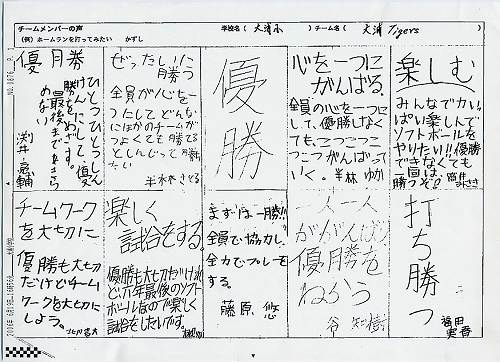 チームメンバーの声
学校名( 大浦小 )チーム名( 大浦Tigers )
(例)ホームランを打ってみたい かずし
優勝
ひとつひとつしん
けんにして優
勝をめざす。
最後まであきら
めない
浅井 亮輔
ぜったいに
勝つ
全員が心を一
つにしてどんな
にほかのチームが
つよくても勝てる
としんじって
半木 さとる
優
勝
心を一つに
がんばる。
全員の心を一つに
して、優勝しなく
ても、こつこつ
こつこつがんばって
いく。半林 ゆか
楽しむ
みんなで力い
ぱい楽しんで
ソフトボールを
やりたい!!優勝
できなくても
一回は、
勝つぞ!
チームワーク
を大切に
優勝も大切
だけどチーム
ワークを大切に
しよう。
楽しく
試合をする
優勝も大切だけれ
ど、六年最後のソフト
ボールなので楽しく
試合をしたいです。
まずは一勝!!
全員で協力し、
全力でプレーを
する。
藤原 悠
一人一人
ががんばり
優勝を
ねがう
谷 知樹
打
ち
勝
つ
福田